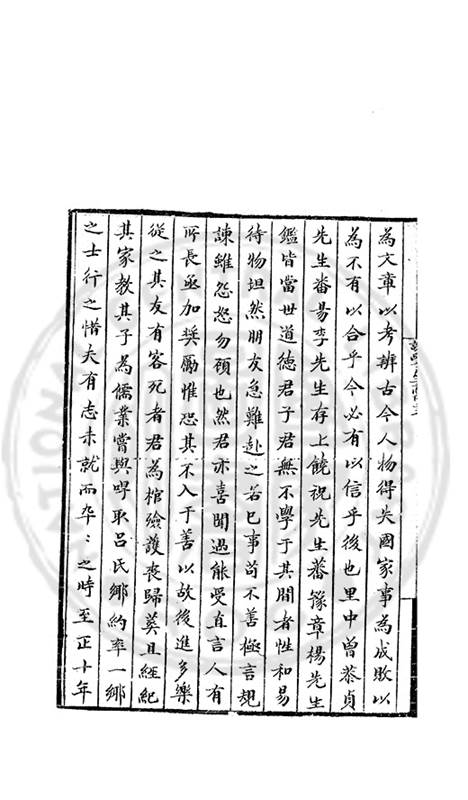 為文章以考辨古今人物得失國家事為成敗以
為不有以合乎今必有以信乎後也里中曾恭貞
先生番易李先生存上饒祝先生蕃豫章楊先生
鑑皆當世道德君子君無不學于其間者性和易
待物坦然朋友急難赴之若己事苟不善極言規
諫雖怨怒勿顧也然君亦喜聞過能受直言人有
所長亟加奨勵惟恐其不入于善以故後進多樂
從之其友有客死者君為棺殮護喪歸葬且經紀
其家教其子為儒業嘗與呼取呂氏鄉約率一鄉
之士行之惜夫有志未就而卒〻之時至正十年